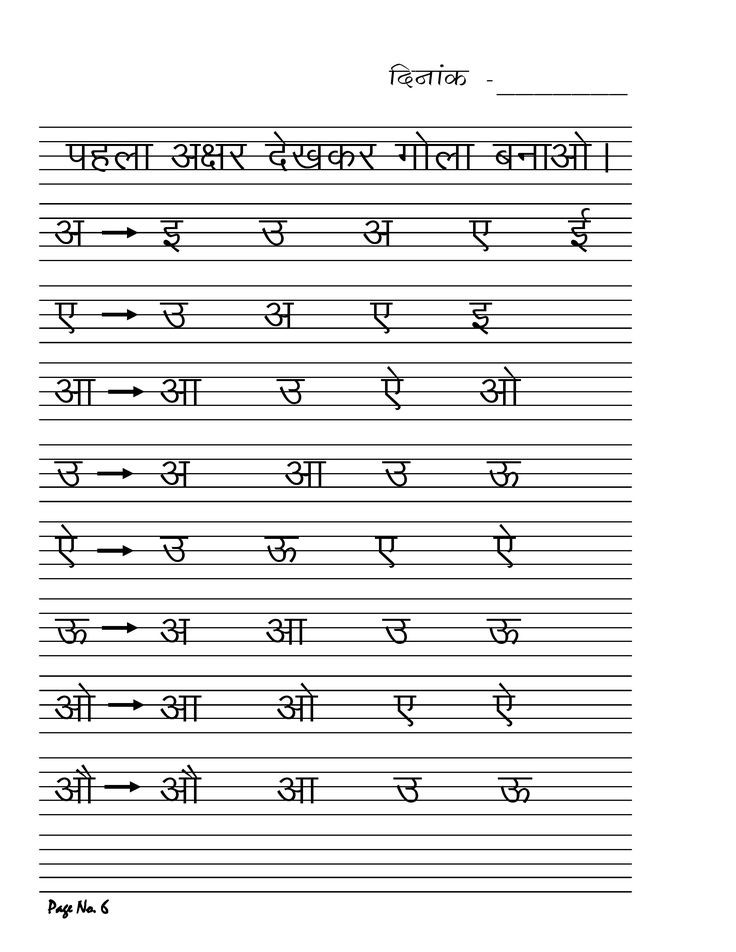 दिनांक -________
पहला अक्षर देखकर गोला बनाओ।
अ → इ उ अ ए ई
ए → उ अ ए इ
आ → आ उ ऐ ओ
उ → अ आ उ ऊ
ऐ → उ ऊ ए ऐ
ऊ → अ आ उ ऊ
ओ → आ ओ ए ऐ
औ → औ आ उ ऊ
Page No. 6